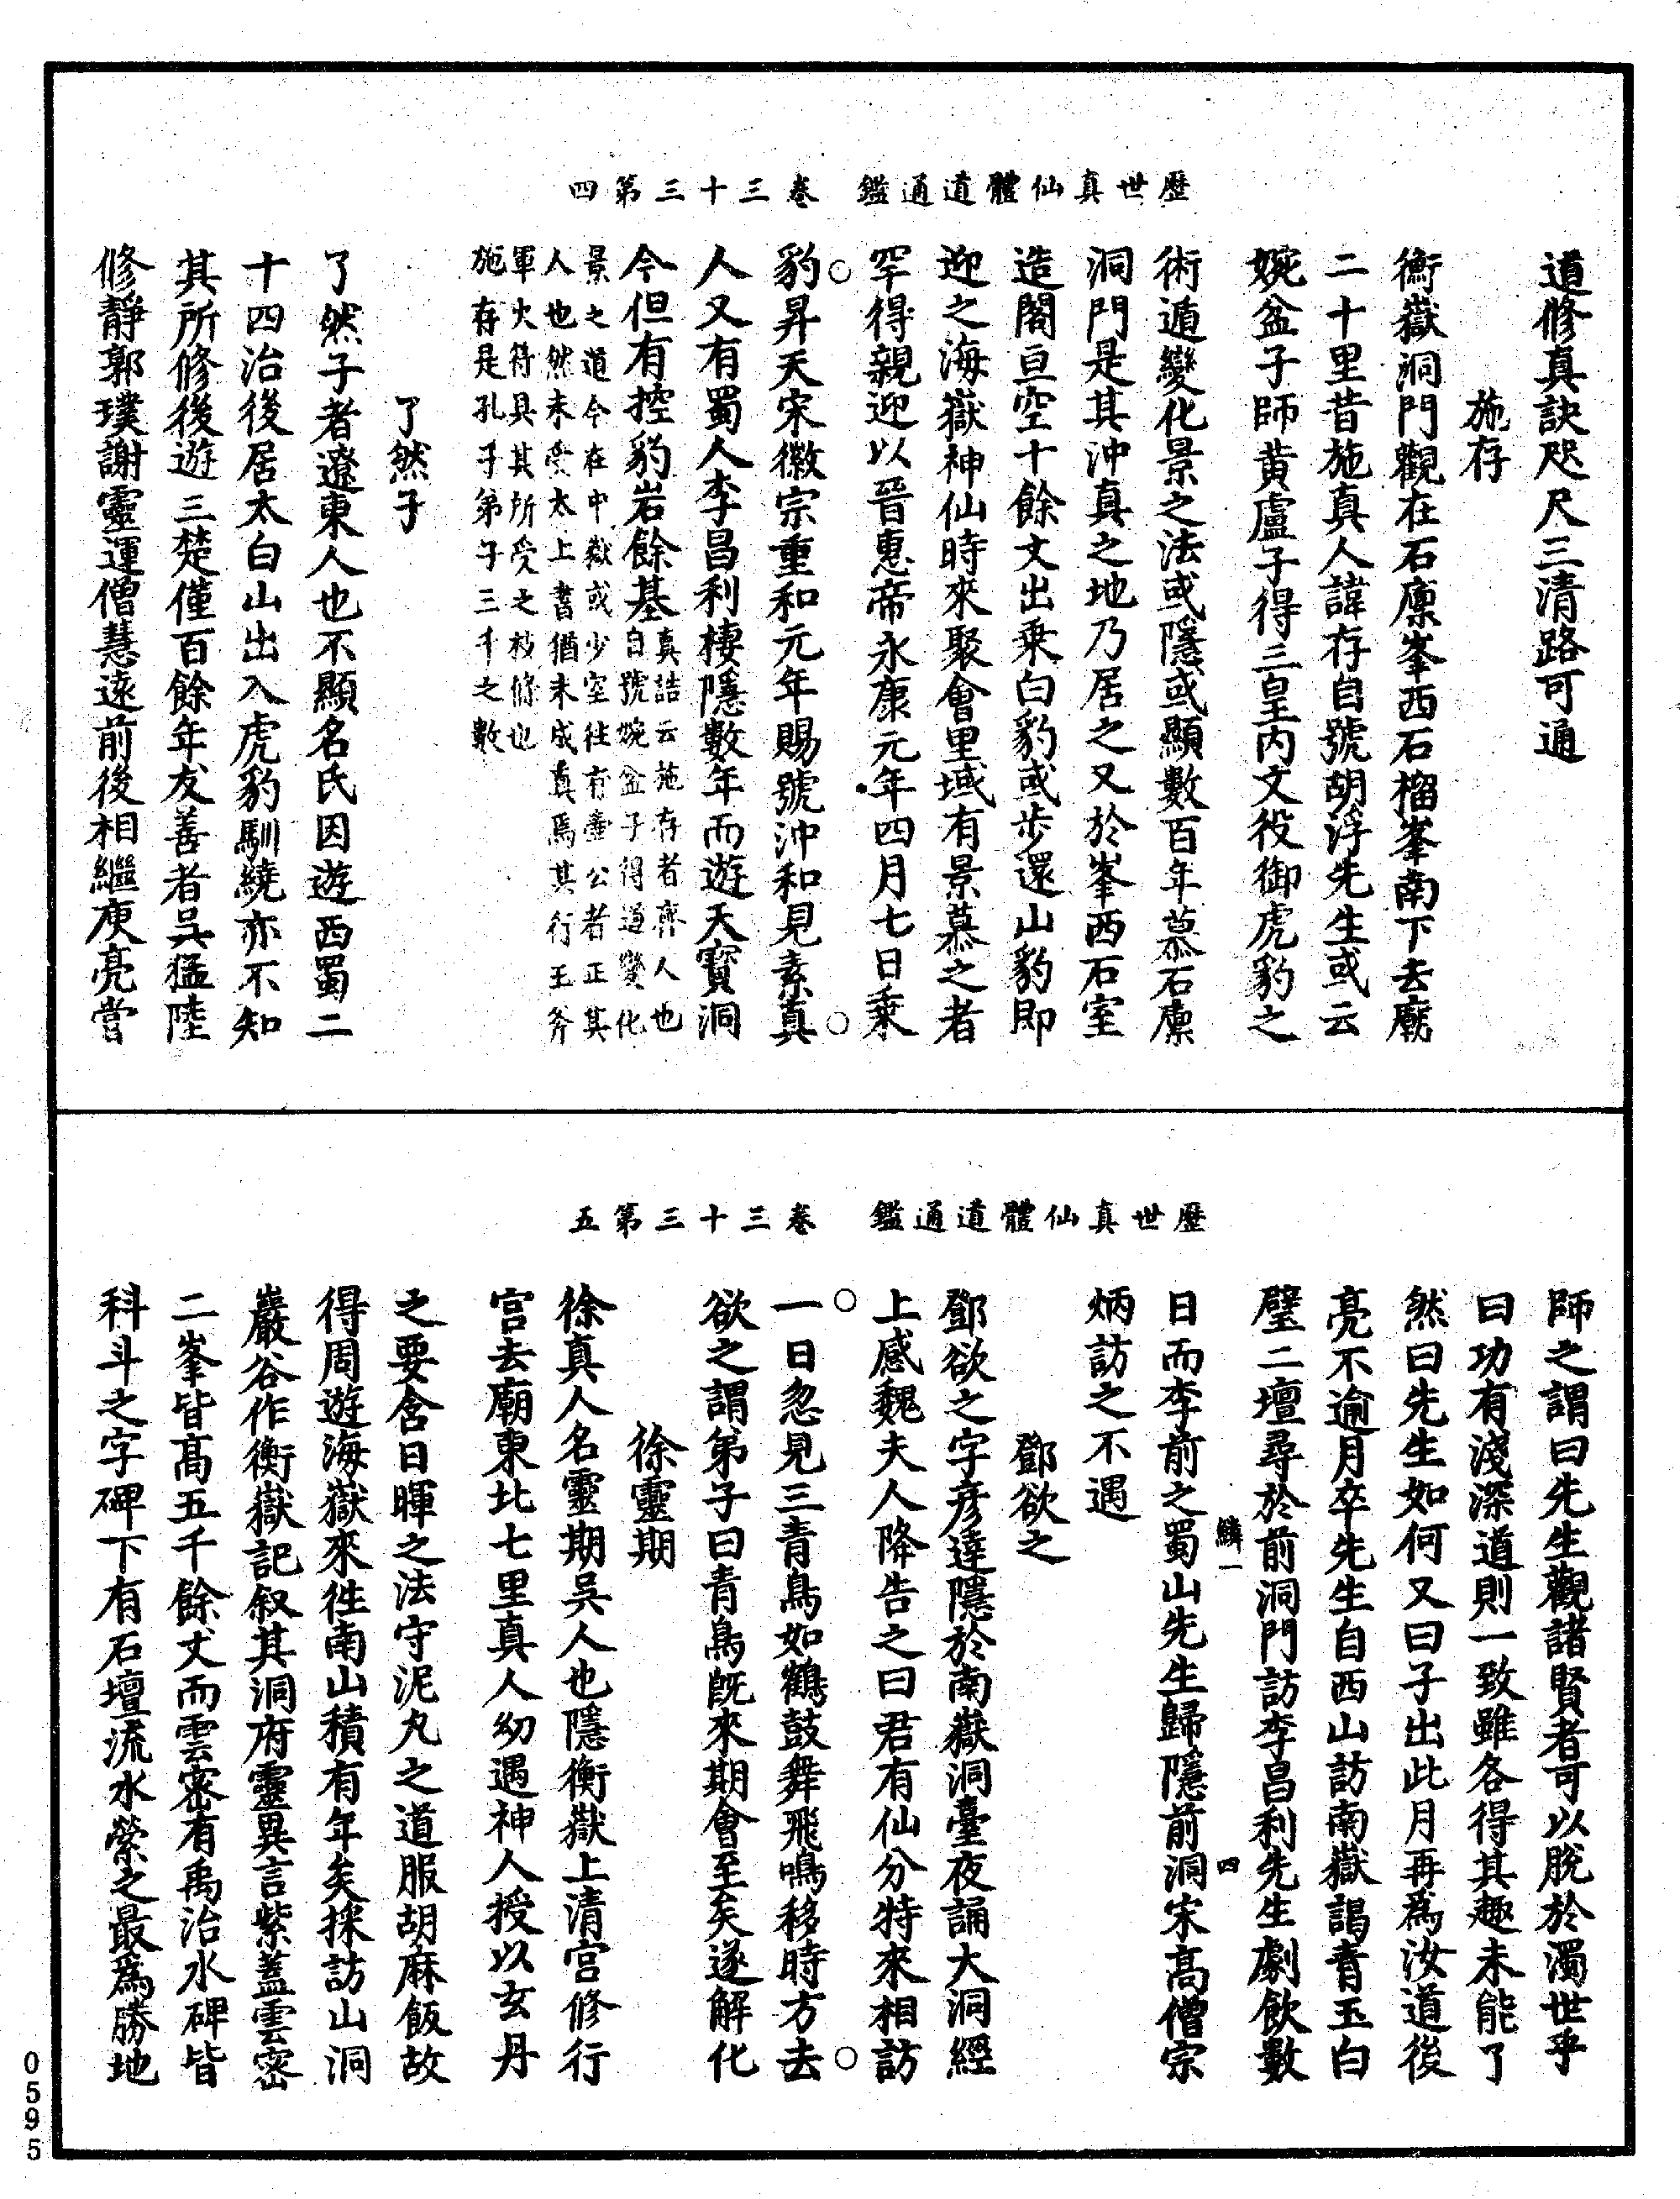 歷世真仙體道通鑑　卷三十三第四
道修真訣咫尺三清路可通
施存
衡嶽洞門觀在石廩峯西石榴峯南下去廟
二十里昔施真人諱存自號胡浮先生或云
婉盆子師黄盧子得三皇内文役御虎豹之
術遁變化景之法或隱或顯數百年慕石廩
洞門是其沖真之地乃居之又於峯西石室
造閣亘空十餘丈出乗白豹或步還山豹即
迎之海嶽神仙時來聚會里域有景慕之者
罕得親迎以晉惠帝永康元年四月七日乗
豹昇天宋徽宗重和元年賜號沖和見素真
人又有蜀人李昌利棲隱數年而遊天寶洞
今但有控豹岩餘基真誥云施存者齊人也
自號婉盆子得道變化
景之道今在中嶽或少室往有壷公者正其
人也然未受太上書猶未成真焉其行玉斧
軍火符具其所受之枝條也
施存是孔子弟子三千之數
了然子
了然子者遼東人也不顯名氏因遊西蜀二
十四治後居太白山出入虎豹馴繞亦不知
其所修後遊三楚僅百餘年友善者吳猛陸
修靜郭璞謝靈運僧慧遠前後相繼庾亮嘗
歷世真仙體道通鑑　卷三十三第五
師之謂曰先生觀諸賢者可以脫於濁世乎
曰功有淺深道則一致雖各得其趣未能了
然曰先生如何又曰子出此月再爲汝道後
亮不逾月卒先生自西山訪南嶽謁青玉白
璧二壇尋於前洞門訪李昌利先生劇飲數
鱗一　四
日而李前之蜀山先生歸隱前洞宋高僧宗
炳訪之不遇
鄧欲之
鄧欲之字彦達隱於南嶽洞臺夜誦大洞經
上感魏夫人降告之曰君有仙分特來相訪
一日忽見三青鳥如鶴鼓舞飛鳴移時方去
欲之謂弟子曰青鳥旣來期會至矣遂解化
徐靈期
徐真人名靈期吳人也隱衡嶽上清宫修行
宫去廟東北七里真人幼遇神人授以玄丹
之要含日暉之法守泥丸之道服胡麻飯故
得周遊海嶽來徃南山積有年矣採訪山洞
巖谷作衡嶽記叙其洞府靈異言紫蓋雲密
二峯皆高五千餘丈而雲密有禹治水碑皆
科斗之字碑下有石壇流水縈之最爲勝地
0595